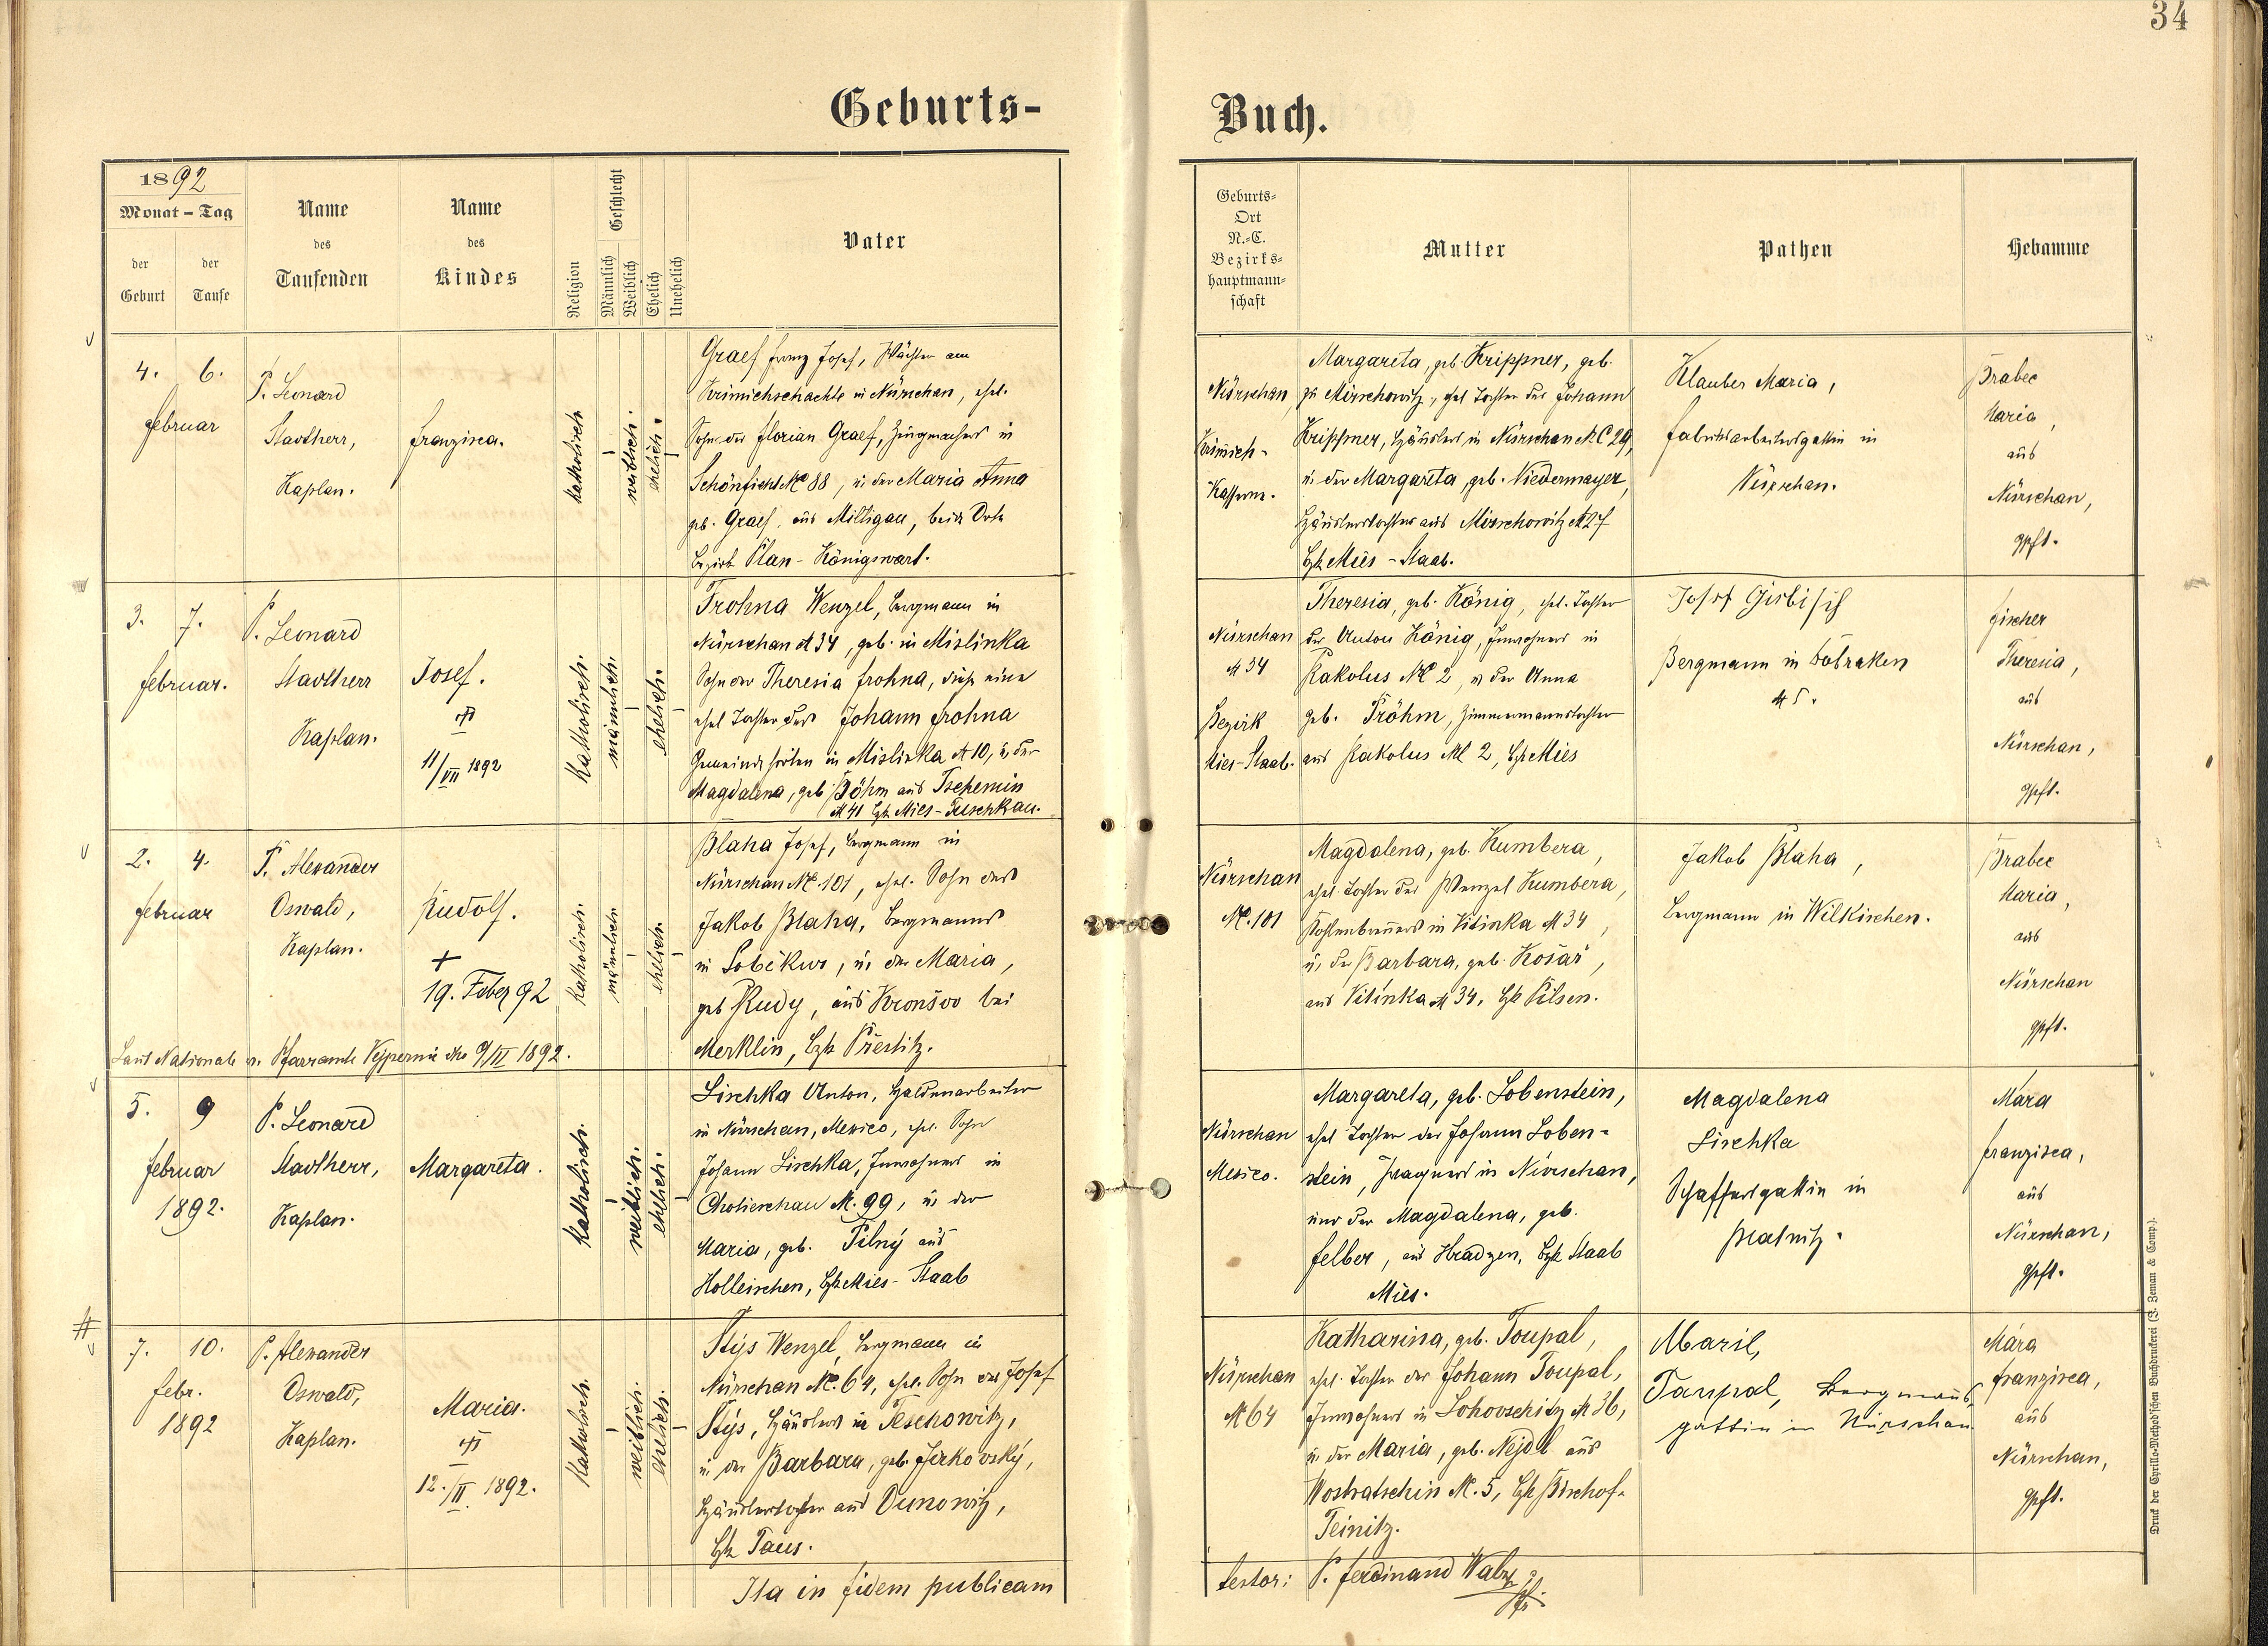 34
Geburts-
Buch.
1892
Monat - Tag
der Geburt
der Taufe
Name des Taufenden
Name des Kindes
Religion
Geschlecht
Männlich
Weiblich
Ehelich
Unehelich
Vater
Geburts-
Ort
N.-C.
Bezirks-
hauptmann-
schaft
Mutter
Pathen
Hebamme
4. 6.
Februar
P. Leonard
Stavtherr,
Kaplan.
Franzisca.
katholisch
weiblich.
ehelich.
Graef Franz Josef, Wächter am
Krimichschachte in Nürschan, ehel.
Sohn des Florian Graef, Zeugmachers in
Schönficht Nc 88, u. der Maria Anna
geb. Graef, aus Milligau, beide Orte
Bezirk Plan - Königswart.
Nürschan
Krimich-
Kasserne.
Margareta, geb. Krippner, geb.
zu Mirschowitz, ehel Tochter des Johann
Krippner, Häuslers in Nürschan N.C 29,
u. der Margareta, geb. Niedermayer,
Häuslerstochter aus Mirschowitz N 27
Bzk Mies - Staab.
Klauber Maria,
Fabriksarbeitersgattin in
Nürschan.
Brabec
Maria,
aus
Nürschan,
gpft.
3. 7.
Februar.
P. Leonard
Stavtherr
Kaplan.
Josef.
11/VII 1892
Katholisch.
männlich.
ehelich.
Frohna Wenzel, Bergmann in
Nürschan N 34, geb. in Mislinka
Sohn der Theresia Frohna, diese eine
ehel Tochter des Johann Frohna
Gemeindehirten in Mislinka N 10, u. der
Magdalena, geb Böhm aus Tschemin
N 41 Bzk Mies - Tuschkau.
Nürschan
N 34
Bezirk
Mies-Staab.
Theresia, geb. König, ehel. Tochter
des Anton König, Inwohners in
Rakolus Nc 2, u der Anna
geb. Fröhm, Zimmermannstochter
aus Rakolus Nc 2, Bzk Mies
Josef
Bergmann in Dobraken
N 5.
Fischer
Theresia,
aus
Nürschan,
gpft.
2. 4.
Februar
P. Alexander
Oswald,
Kaplan.
Rudolf.
+
19. Feber 92
katholisch.
männlich
ehelich.
Laut Nationale v. Pfarramte Vejpernic dto 9/II 1892.
Blaha Josef, Bergmann in
Nürschan Nc. 101, ehel. Sohn des
Jakob Blaha, Bergmanns
in Soběkur, u. der Maria,
geb Rudy, aus Kronšov bei
Merklin, Bzk Přestitz.
Nürschan
Nc. 101
Magdalena, geb. Kumbera,
ehel Tochter des Wenzel Kumbera,
Kohlenbrenners in Vitinka N 34,
u. der Barbara, geb. Kosař,
aus Vitinka N 34, Bzk Pilsen.
Jakob Blaha,
Bergmann in Wilkischen.
Brabec
Maria,
aus
Nürschan
gpft.
5. 9
Februar
1892.
P. Leonard
Stavtherr,
Kaplan.
Margareta.
Katholisch.
weiblich.
ehelich.
Lischka Anton, Haldenarbeiter
in Nürschan, Mexico, ehel. Sohn
Johann Lischka, Inwohners in
Chotieschau N. 99, u. der
Maria, geb. Pilný aus
Holleischen, Bzk Mies - Staab
Nürschan
Mexico.
Margareta, geb. Lobenstein,
ehel Tochter des Johann Loben-
stein, Fragners in Nürschan,
und der Magdalena, geb.
Felber, aus Hradzen, Bzk Staab
Mies.
Magdalena
Lischka
Schaffersgattin in
Blatnitz.
Mara
Franzisca,
aus
Nürschan,
gpft.
7. 10.
Febr.
1892
P. Alexander
Oswald,
Kaplan.
Maria.
12./II. 1892.
Katholisch.
weiblich.
ehelich.
Stýs Wenzel, Bergmann in
Nürschan Nc. 64, ehel. Sohn des Josef
Stýs, Häuslers in Teschowitz,
u. der Barbara, geb. Jirkovský,
Häuslerstochter aus Dunowitz,
Bzk Taus.
Nürschan
N 64
Katharina, geb. Toupal,
ehel. Tochter des Johann Toupal,
Inwohners in Lohovschitz N 36,
u. der Maria, geb. Nejdl aus
Wostratschin N. 5, Bzk Bischof-
Teinitz.
Maril,
Taupal, Bergmanns
gattin in Nürschan
Mára
Franzisca,
aus
Nürschan,
gpft.
Ita in fidem publicam
testor: P. Ferdinand
Druck der Cyrillo-Method'schen Buchdruckerei (J. Zeman & Comp.).